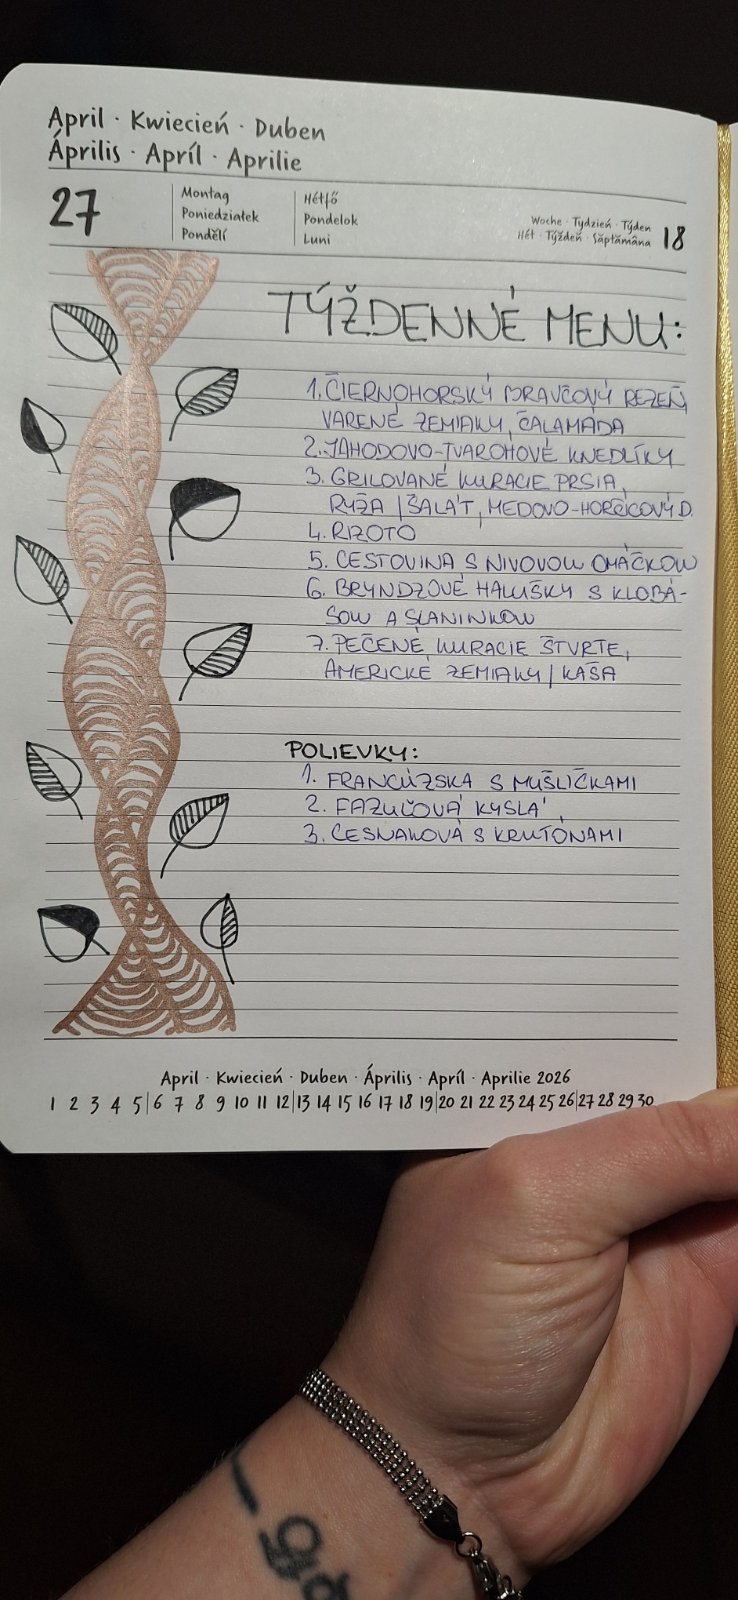 April · Kwiecień · Duben
Április · Apríl · Aprilie
27
Montag
Poniedziałek
Pondělí
Hétfő
Pondelok
Luni
Woche · Tydzień · Týden
Hét · Týždeň · Săptămâna
18
TÝŽDENNÉ MENU:
1. ČIERNOHORSKÝ BRAVČOVÝ REZEŇ,
VARENÉ ZEMIAKY, ČALAMÁDA
2. JAHODOVO-TVAROHOVÉ KNEDLÍKY
3. GRILOVANÉ KURACIE PRSIA,
RYŽA / ŠALÁT, MEDOVO-HORČICOVÝ D.
4. RIZOTO
5. CESTOVINA S NIVOVOU OMÁČKOU
6. BRYNDZOVÉ HALUŠKY S KLOBÁ-
SOU A SLANINKOU
7. PEČENÉ KURACIE ŠTVRTE,
AMERICKÉ ZEMIAKY / KAŠA
POLIEVKY:
1. FRANCÚZSKA S MUŠLIČKAMI
2. FAZUĽOVÁ KYSLÁ
3. CESNAKOVÁ S KRUTÓNAMI
April · Kwiecień · Duben · Április · Apríl · Aprilie 2026
1 2 3 4 5 | 6 7 8 9 10 11 12 | 13 14 15 16 17 18 19 | 20 21 22 23 24 25 26 | 27 28 29 30